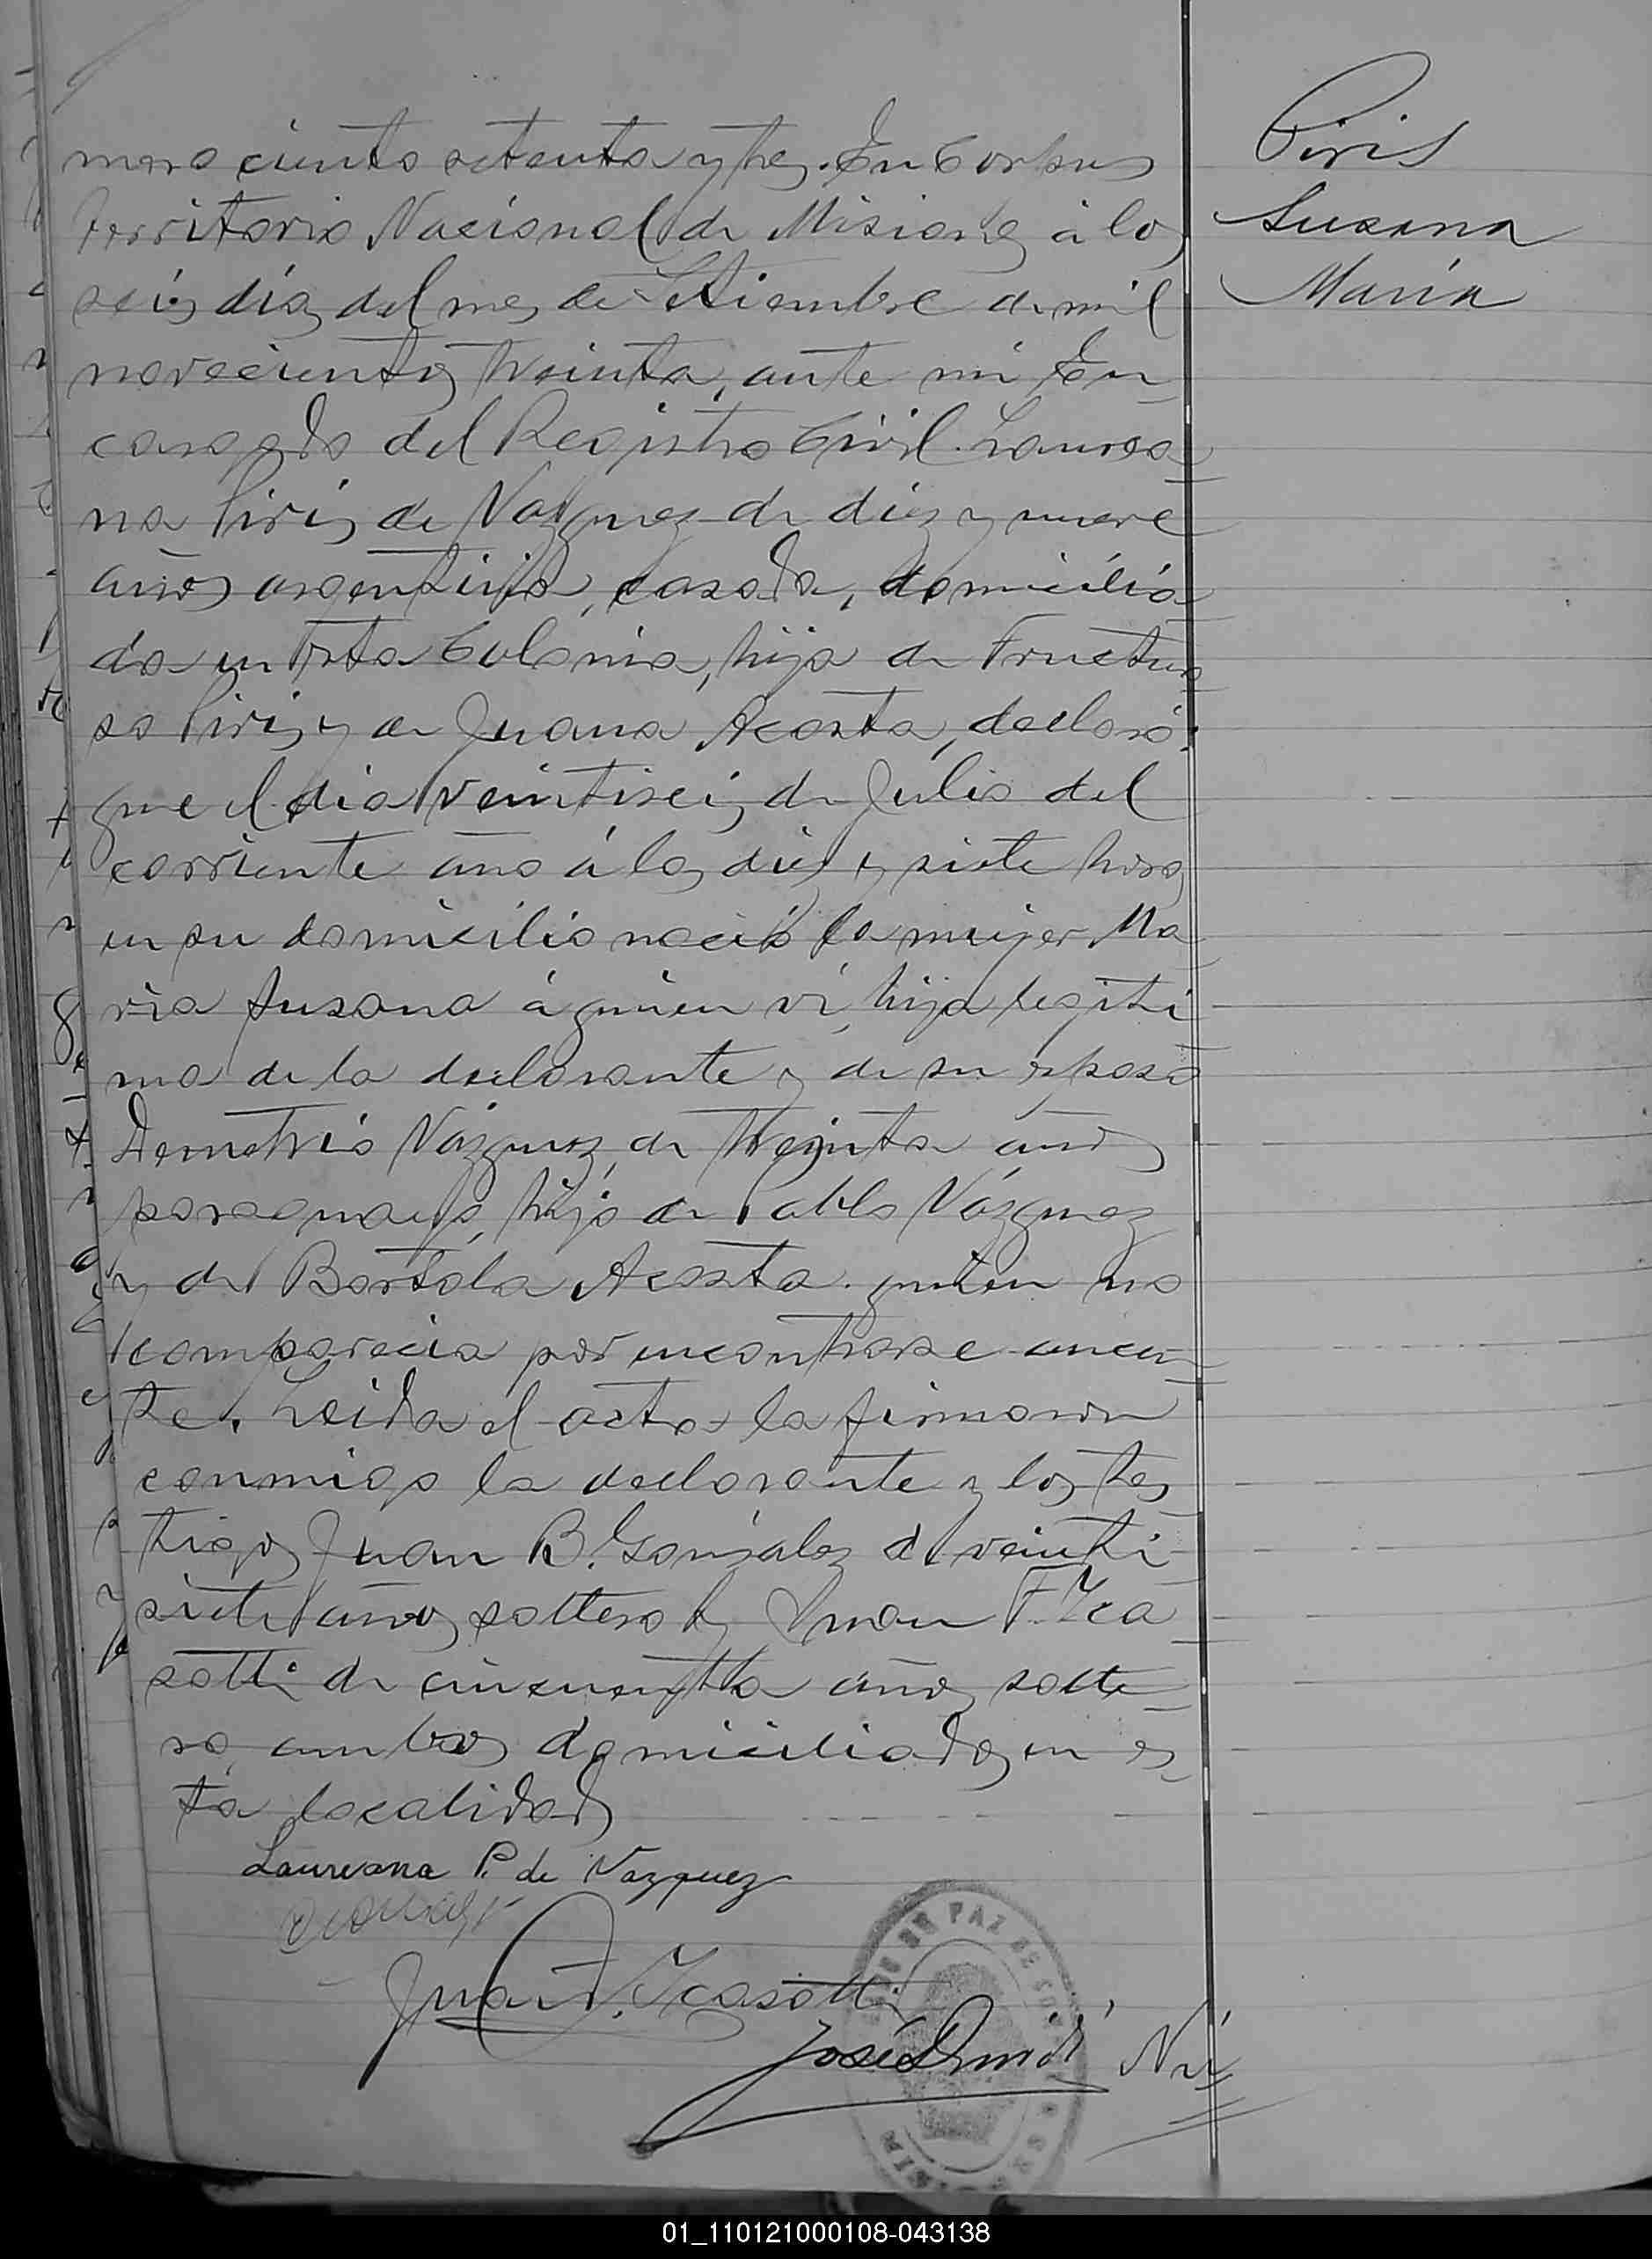 mero ciento setenta y tres. En Corpus
Territorio Nacional de Misiones á los
seis días del mes de Setiembre de mil
novecientos treinta, ante mi En
cargado del Registro Civil. Laurea
na Piris de Vazquez de diez y nueve
años argentina, casada, domicilia
da en esta Colonia, hija de Fructuo
so Piris y de Juana Acosta, declaró:
que el dia veintiseis de Julio del
corriente año á las diez y siete horas
en su domicilio nació la mujer Ma
ria Susana á quien ví, hija legiti
ma de la declarante y de su esposo
Demetrio Vázquez, de treinta años
paraguayo, hijo de Pablo Vázquez
y de Bartola Acosta. quien no
comparecia por encontrarse ausen
te. Leida el acta la firmaron
conmigo la declarante y los tes
tigos Juan B. González de veinti
siete años soltero y Juan F. Ica
sotti de cincuenta años solte
ro, ambos domiciliados en es
ta localidad
Laureana P. de Vazquez
Juan F. Icasotti
José
Piris
Susana
María
DE PAZ DE
01_110121000108-043138